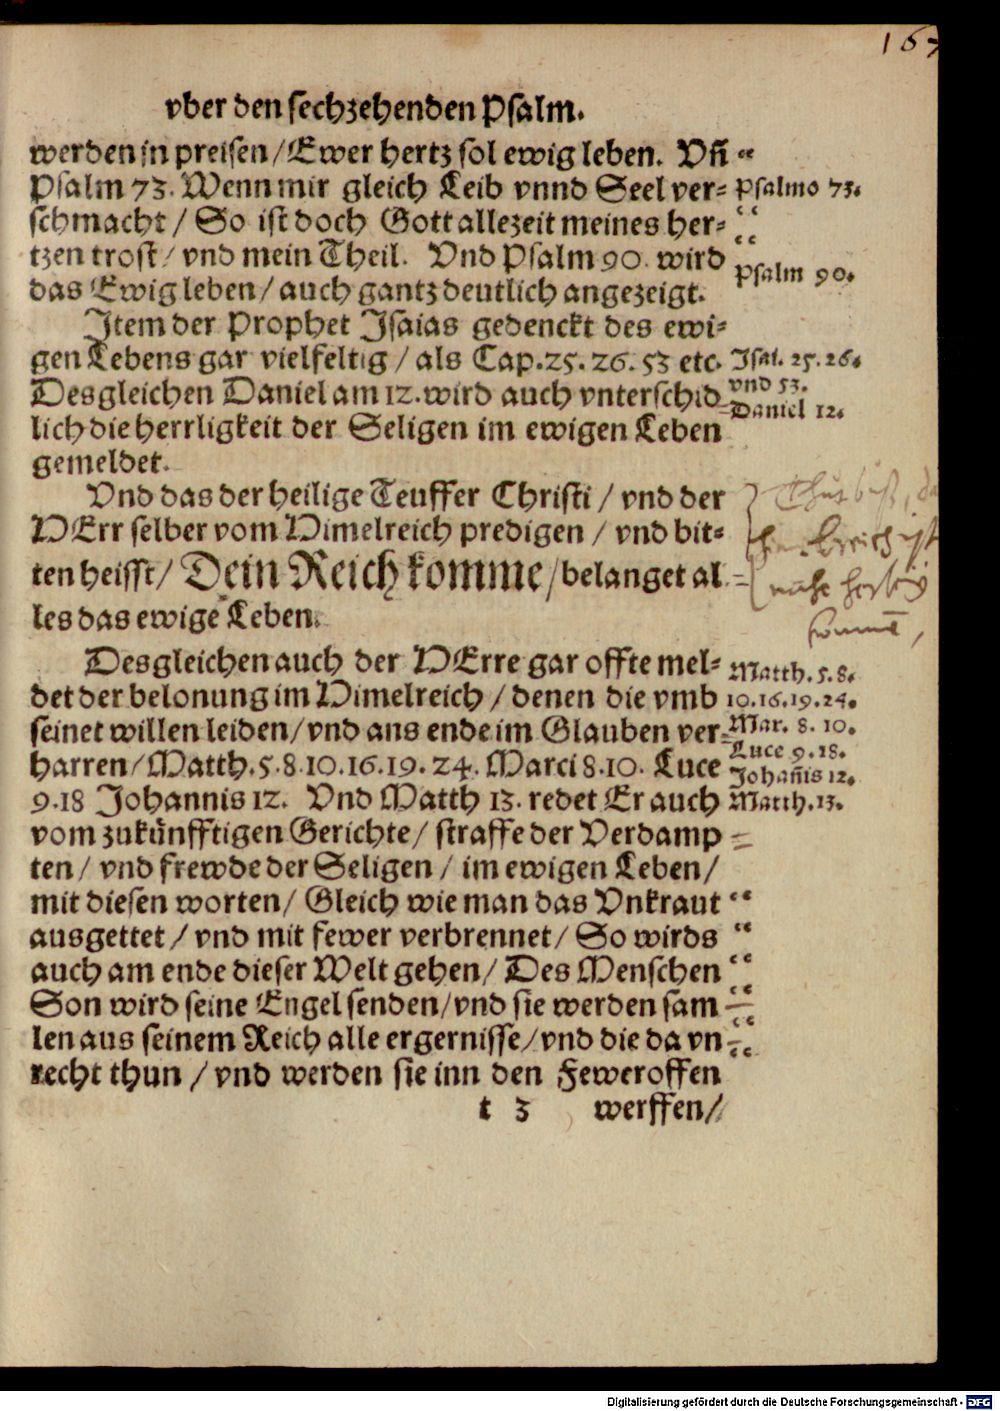 167
vber den sechzehenden Psalm.
werden jn preisen/Ewer hertz sol ewig leben. Vñ “
Psalm 73. Wenn mir gleich Leib vnnd Seel ver- Psalmo 73.
schmacht / So ist doch Gott allezeit meines her- “
tzen trost/ vnd mein Theil. Vnd Psalm 90. wird “
Psalm 90.
das Ewig leben/ auch gantz deutlich angezeigt.
Item der Prophet Isaias gedenckt des ewi-
gen Lebens gar vielfeltig / als Cap.25. 26. 53 etc. Isai. 25. 26.
vnd 53.
Desgleichen Daniel am 12. wird auch vnterschid- Daniel 12.
lich die herrligkeit der Seligen im ewigen Leben
gemeldet.
Vnd das der heilige Teuffer Christi / vnd der
HErr selber vom Himelreich predigen / vnd bit-
ten heisst/ Dein Reich komme/belanget al-
les das ewige Leben.
Thut buß, das
himelreich ist
nahe herbey
kommē,
Desgleichen auch der HErre gar offte mel- Matth. 5. 8.
det der belonung im Himelreich / denen die vmb 10.16.19.24.
seinet willen leiden/ vnd ans ende im Glauben ver- Mar. 8. 10.
Luce 9. 18.
harren/ Matth.5.8.10.16.19. 24. Marci 8.10. Luce Johañis 12.
9.18 Johannis 12. Vnd Matth 13. redet Er auch Matth.13.
vom zukünfftigen Gerichte/ straffe der Verdamp-
ten/ vnd frewde der Seligen / im ewigen Leben/
mit diesen worten/ Gleich wie man das Vnkraut “
ausgettet / vnd mit fewer verbrennet/ So wirds “
auch am ende dieser Welt gehen/ Des Menschen “
Son wird seine Engel senden/vnd sie werden sam- “
len aus seinem Reich alle ergernisse/vnd die da vn- “
recht thun / vnd werden sie inn den Feweroffen “
t 3 werffen/
Digitalisierung gefördert durch die Deutsche Forschungsgemeinschaft - DFG